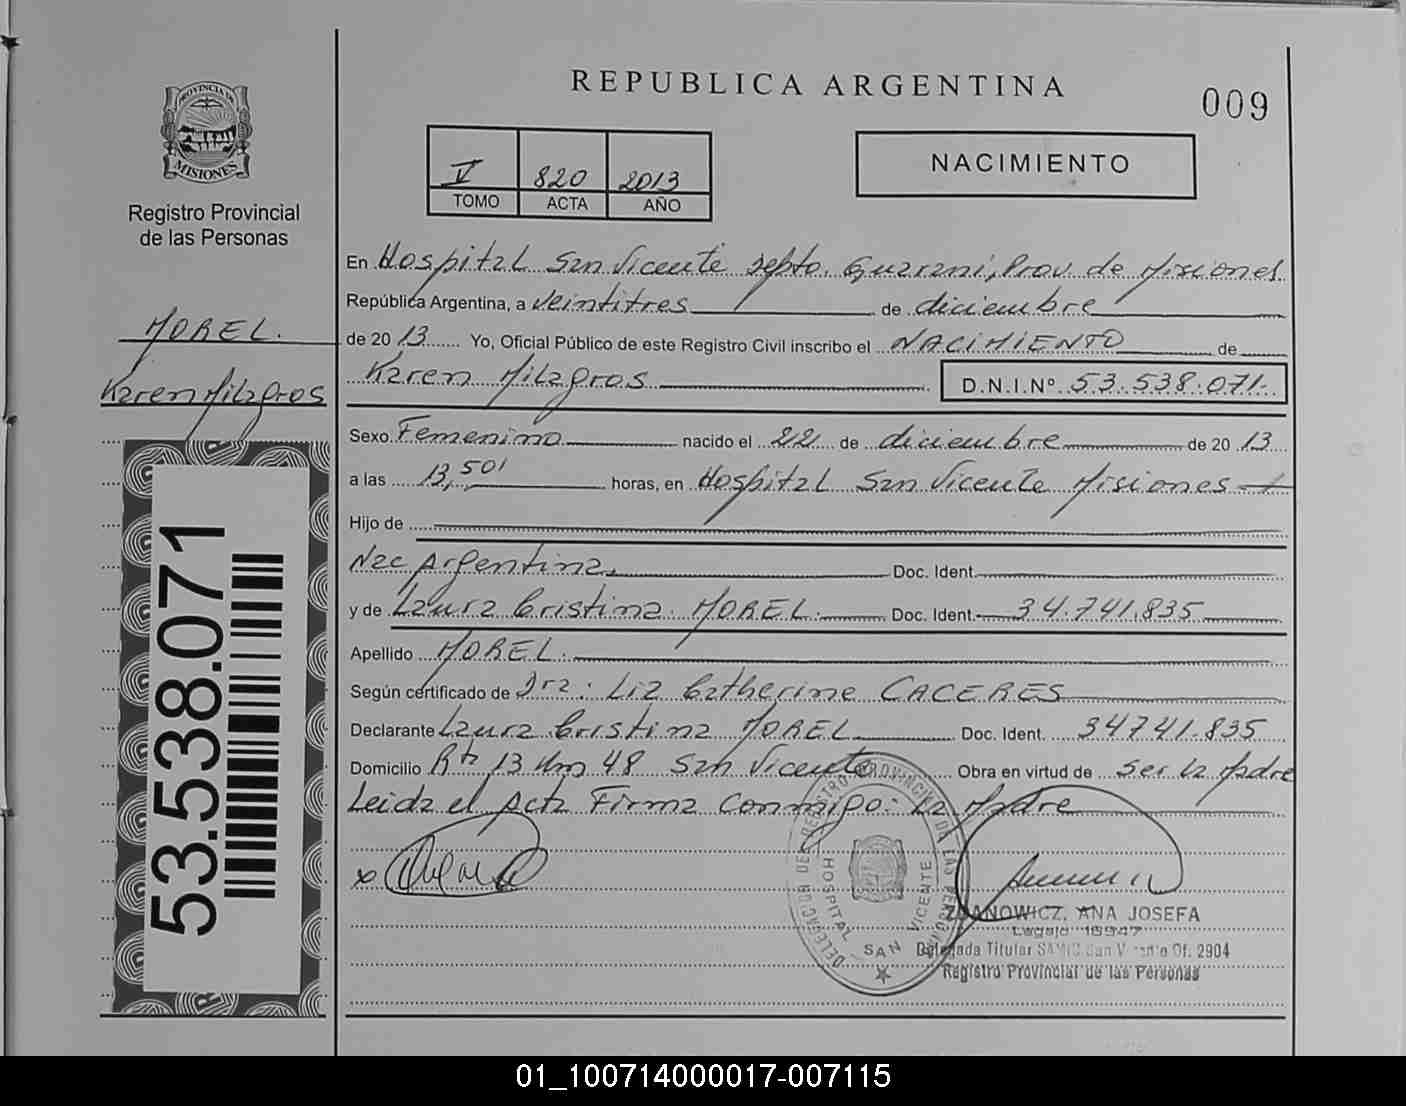 REPUBLICA ARGENTINA
009
PROVINCIA DE
MISIONES
Registro Provincial
de las Personas
V 820 2013
TOMO ACTA AÑO
NACIMIENTO
MOREL.
Karen Milagros
53.538.071
En Hospital San Vicente Depto. Guarani, Prov. de Misiones
República Argentina, a veintitres de diciembre
de 20 13 Yo, Oficial Público de este Registro Civil inscribo el NACIMIENTO de
Karen Milagros D.N.I.Nº 53.538.071.
Sexo Femenino nacido el 22 de diciembre de 20 13
a las 13,50' horas, en Hospital San Vicente Misiones
Hijo de
Nac Argentina, Doc. Ident.
y de Laura Cristina MOREL. Doc. Ident. 34.741.835
Apellido MOREL.
Según certificado de Dra: Liz Catherine CACERES
Declarante Laura Cristina MOREL Doc. Ident. 34741.835
Domicilio Rta 13 Km 48 San Vicente Obra en virtud de ser la Madre
Leida el Acta Firma Conmigo: La Madre
DELEGACION DEL REGISTRO PROVINCIAL DE LAS PERSONAS
HOSPITAL SAN VICENTE
ZDANOWICZ, ANA JOSEFA
Legajo 16947
Delegada Titular SAMIC San Vicente Of. 2904
Registro Provincial de las Personas
01_100714000017-007115